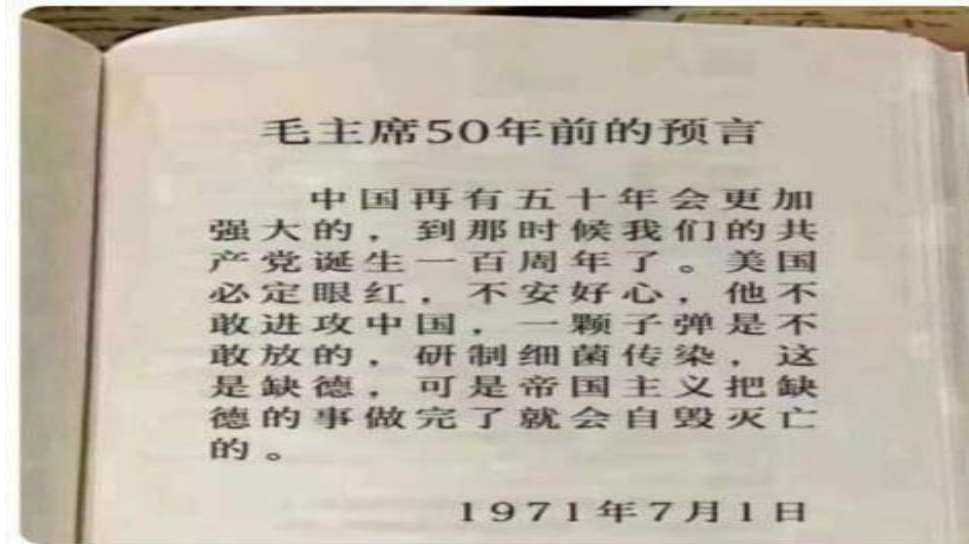 毛主席50年前的预言
中国再有五十年会更加
强大的，到那时候我们的共
产党诞生一百周年了。美国
必定眼红，不安好心，他不
敢进攻中国，一颗子弹是不
敢放的，研制细菌传染，这
是缺德，可是帝国主义把缺
德的事做完了就会自毁灭亡
的。
1971年7月1日